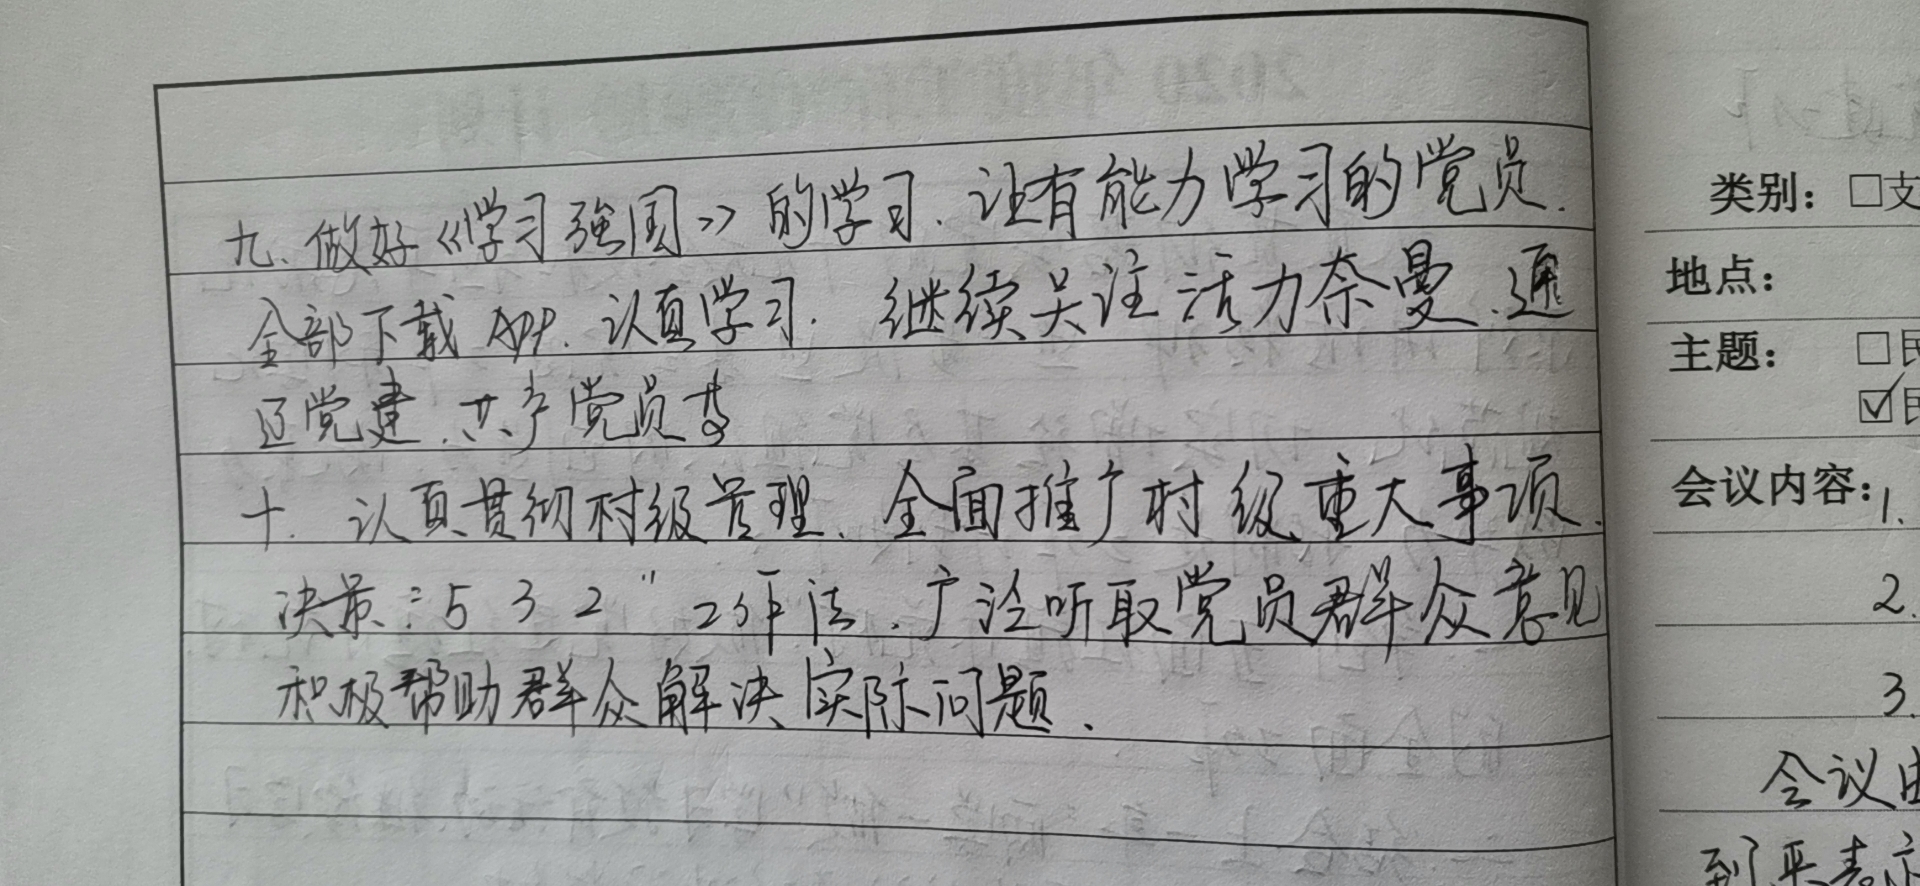 九、做好《学习强国》的学习.让有能力学习的党员.
全部下载APP.认真学习.继续关注活力奈曼.通
辽党建.共产党员等
十、认真贯彻村级管理、全面推广村级重大事项.
决策:532"工作法.广泛听取党员群众意见
积极帮助群众解决实际问题.
类别:□支
地点:
主题:□民
☑民
会议内容:1.
2.
3.
会议由